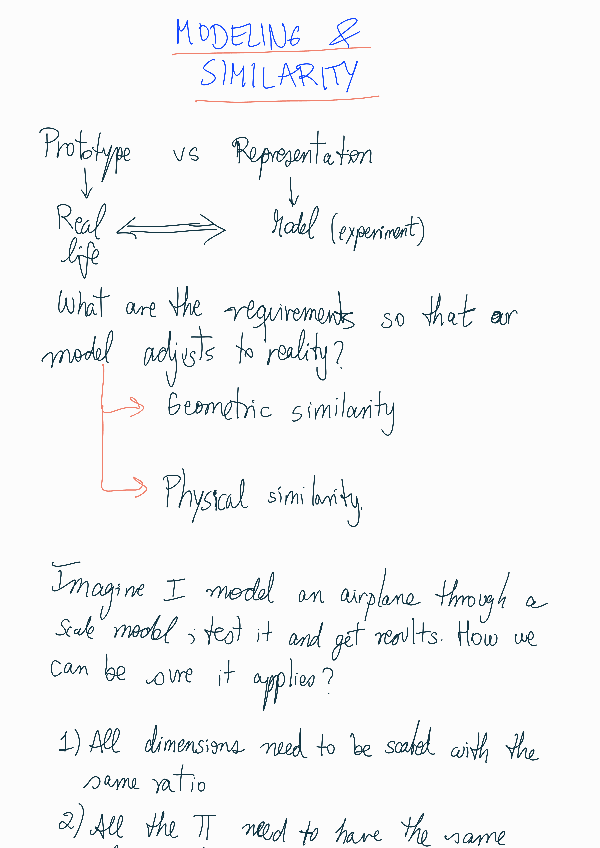 MODELING &
SIMILARITY
Prototype vs Representation
Real Model (experiment)
life
What are the requirements so that our
model adjusts to reality?
Geometric similarity
Physical similarity.
Imagine I model an airplane through a
scale model, test it and get results. How we
can be sure it applies?
1) All dimensions need to be scaled with the
same ratio
2) All the π need to have the same